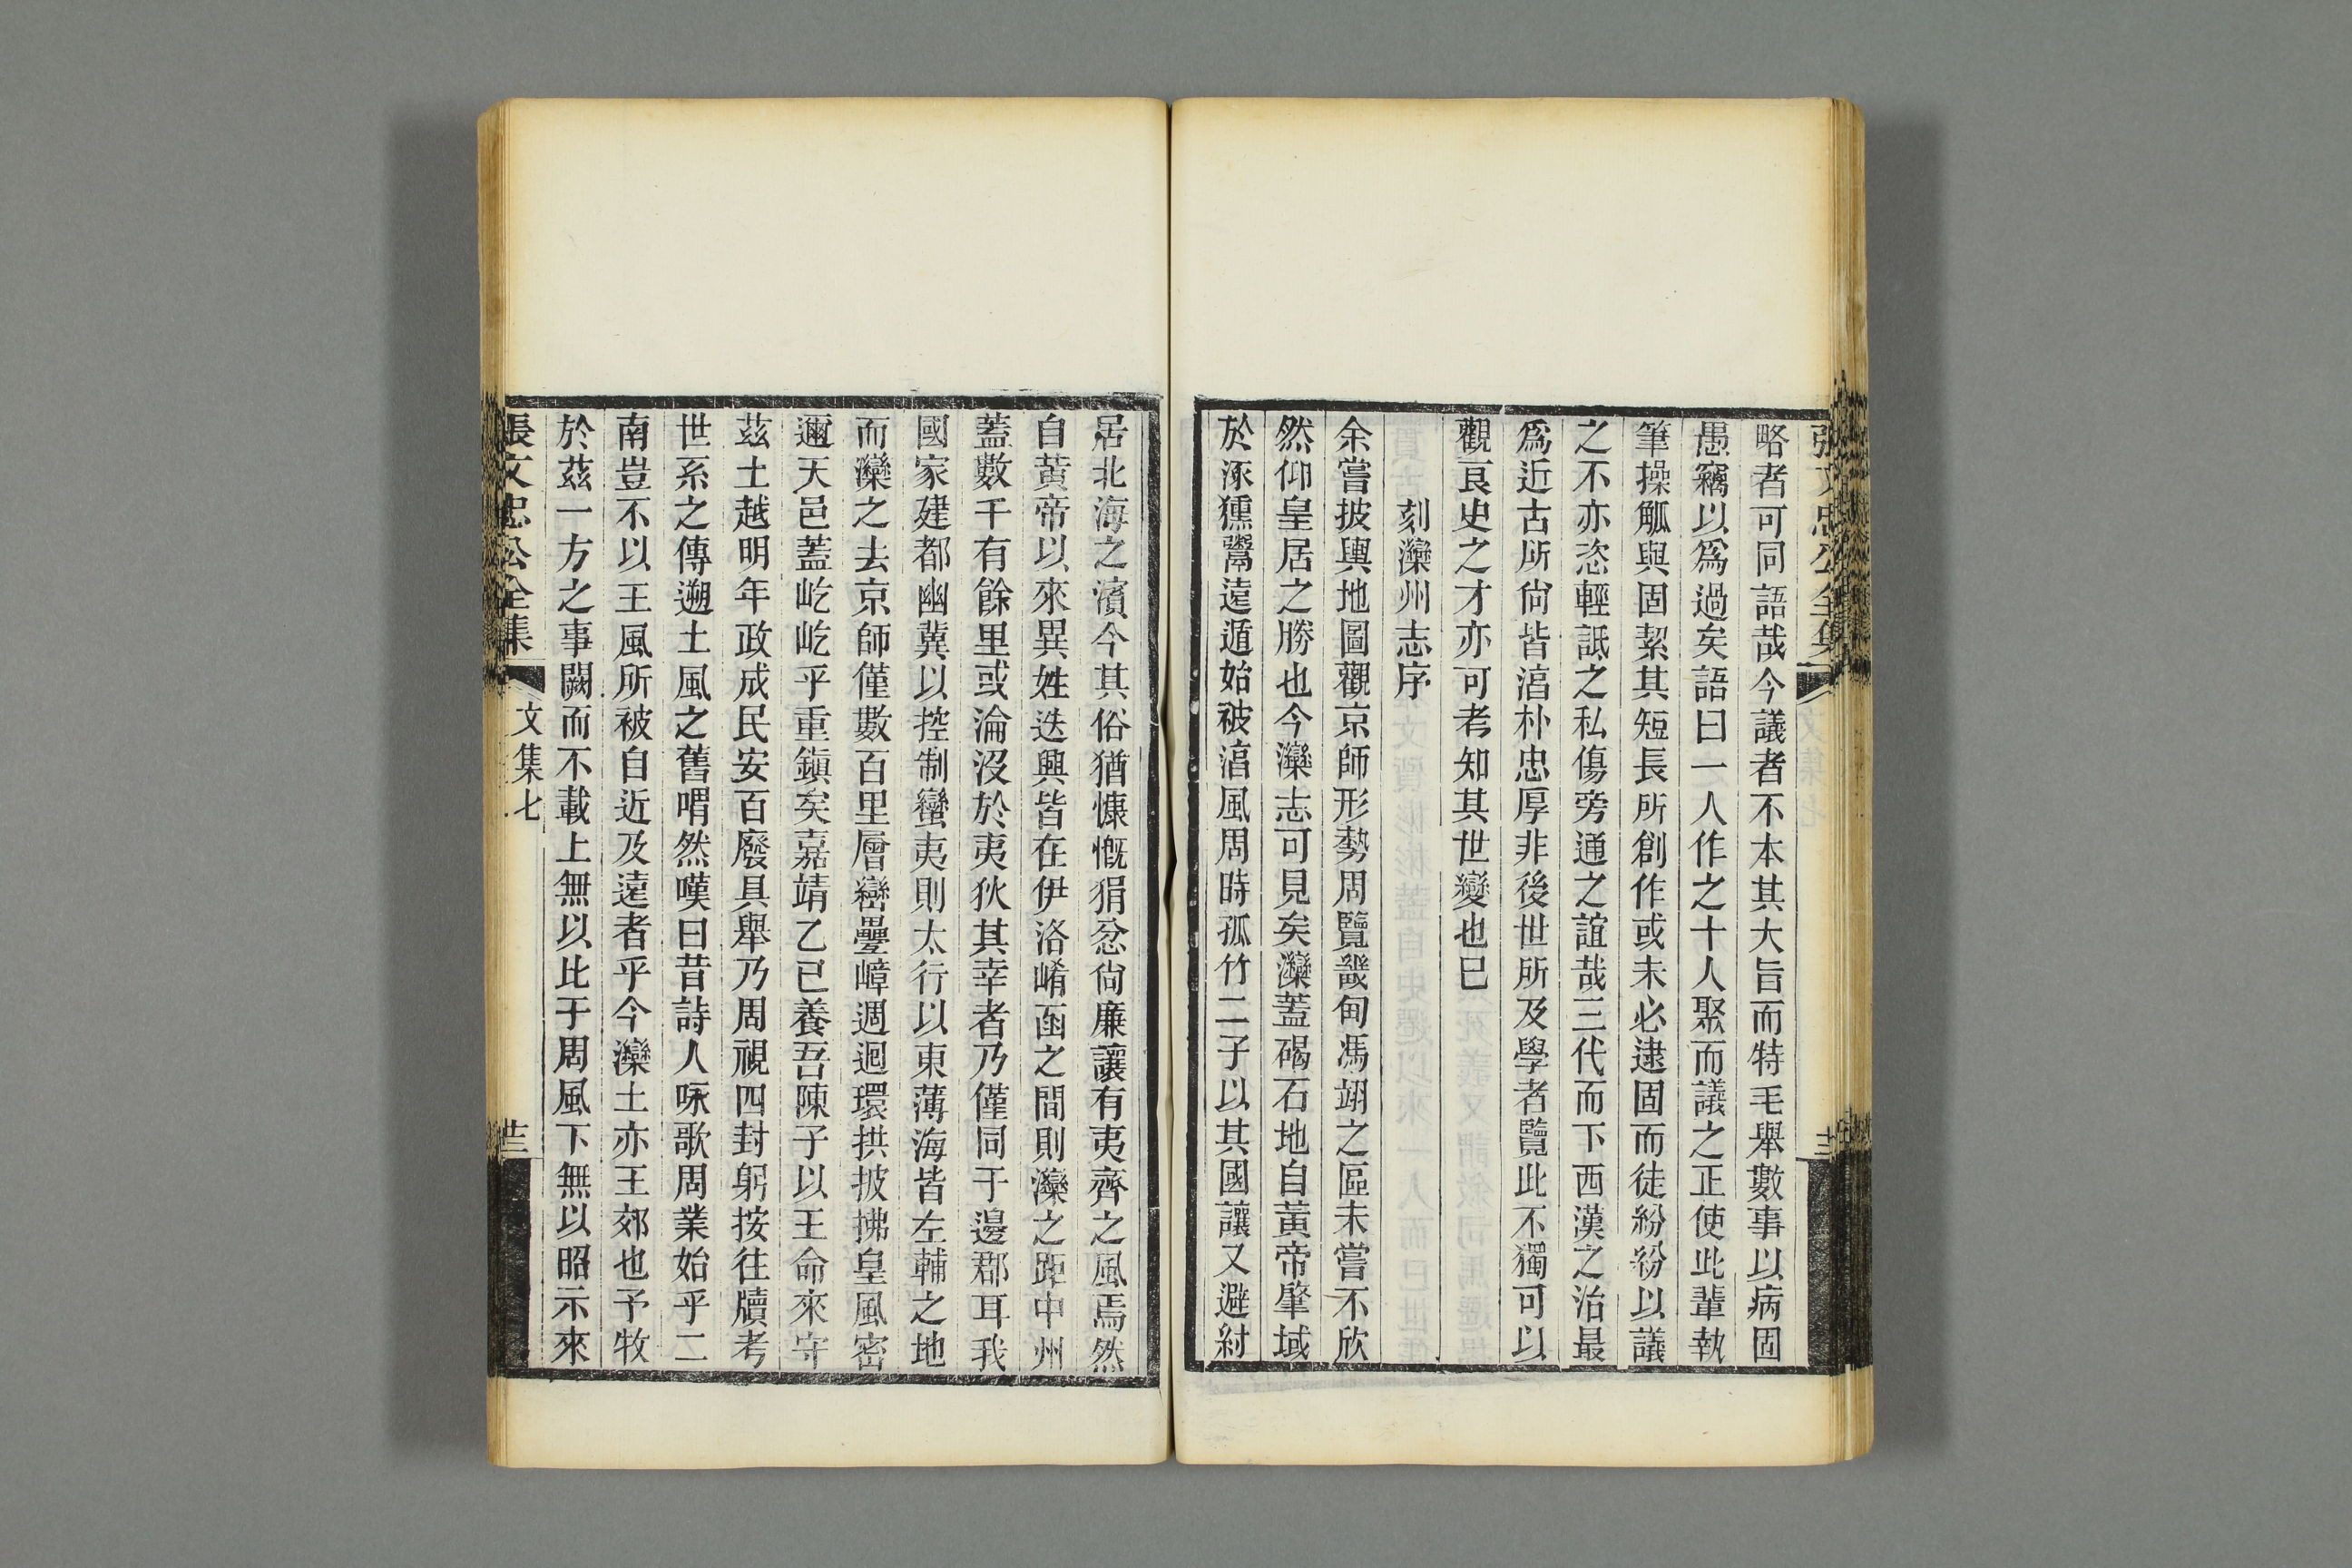 張文忠公全集
略者可同語哉今議者不本其大旨而特毛舉數事以病固
愚竊以爲過矣語曰一人作之十人聚而議之正使此輩執
筆操觚與固絜其短長所創作或未必逮固而徒紛紛以議
之不亦恣輕詆之私傷旁通之誼哉三代而下西漢之治最
爲近古所尙皆湻朴忠厚非後世所及學者覽此不獨可以
觀良史之才亦可考知其世變也已
刻灤州志序
余嘗披輿地圖觀京師形勢周覽畿甸馮翊之區未嘗不欣
然仰皇居之勝也今灤志可見矣灤蓋碣石地自黃帝肇域
於涿獯鬻遠遁始被湻風周時孤竹二子以其國讓又避紂
居北海之濱今其俗猶慷慨狷忿尙廉讓有夷齊之風焉然
自黃帝以來異姓迭興皆在伊洛崤函之間則灤之距中州
蓋數千有餘里或淪沒於夷狄其幸者乃僅同于邊郡耳我
國家建都幽冀以控制蠻夷則太行以東薄海皆左輔之地
而灤之去京師僅數百里層巒疊嶂週迴環拱披拂皇風密
邇天邑蓋屹屹乎重鎭矣嘉靖乙已養吾陳子以王命來守
茲土越明年政成民安百廢具舉乃周視四封躬按往牘考
世系之傳遡土風之舊喟然嘆曰昔詩人咏歌周業始乎二
南豈不以王風所被自近及遠者乎今灤土亦王郊也予牧
於茲一方之事闕而不載上無以比于周風下無以昭示來
張文忠公全集
文集七